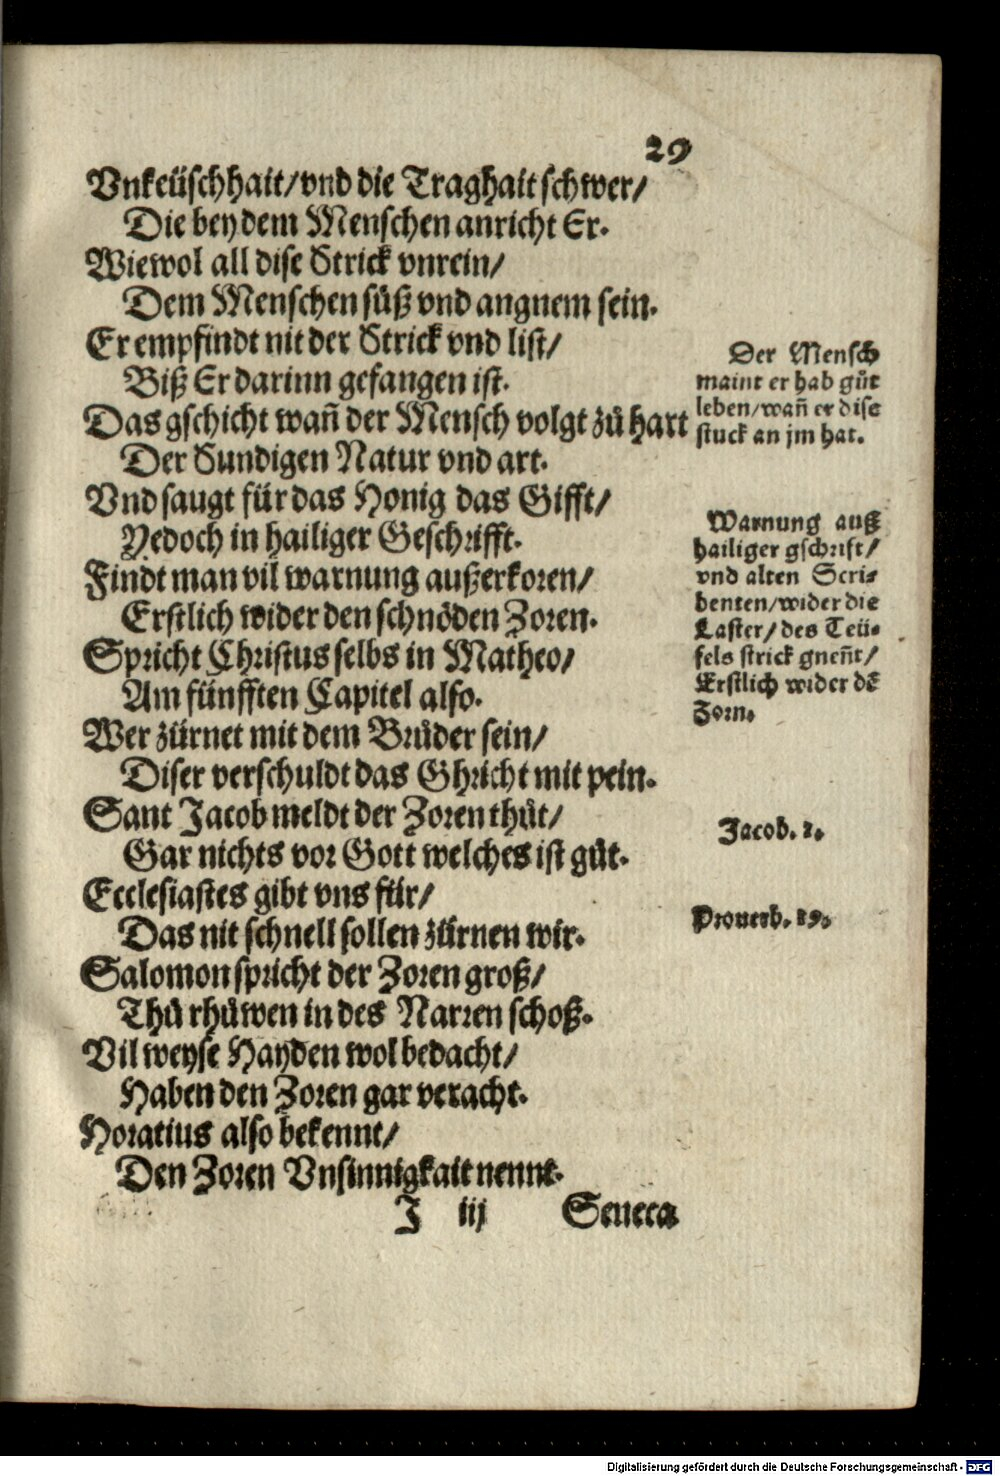 29
Vnkeüschhait/vnd die Traghait schwer/
Die bey dem Menschen anricht Er.
Wiewol all dise Strick vnrein/
Dem Menschen süß vnd angnem sein.
Er empfindt nit der Strick vnd list/
Biß Er darinn gefangen ist.
Das gschicht wañ der Mensch volgt zů hart
Der Sundigen Natur vnd art.
Vnd saugt für das Honig das Gifft/
Yedoch in hailiger Geschrifft.
Findt man vil warnung außerkoren/
Erstlich wider den schnöden Zoren.
Spricht Christus selbs in Matheo/
Am fünfften Capitel also.
Wer zürnet mit dem Brůder sein/
Diser verschuldt das Ghricht mit pein.
Sant Jacob meldt der Zoren thůt/
Gar nichts vor Gott welches ist gůt.
Ecclesiastes gibt vns für/
Das nit schnell sollen zürnen wir.
Salomon spricht der Zoren groß/
Thů rhůwen in des Narren schoß.
Vil weyse Hayden wol bedacht/
Haben den Zoren gar veracht.
Horatius also bekennt/
Den Zoren Vnsinnigkait nennt.
J iij Seneca
Der Mensch
maint er hab gůt
leben/wañ er dise
stuck an jm hat.
Warnung auß
hailiger gschrift/
vnd alten Scri-
benten/wider die
Laster/des Teü-
fels strick gneñt/
Erstlich wider dē
Zorn.
Jacob. 1.
Prouerb. 29.
Digitalisierung gefördert durch die Deutsche Forschungsgemeinschaft - DFG